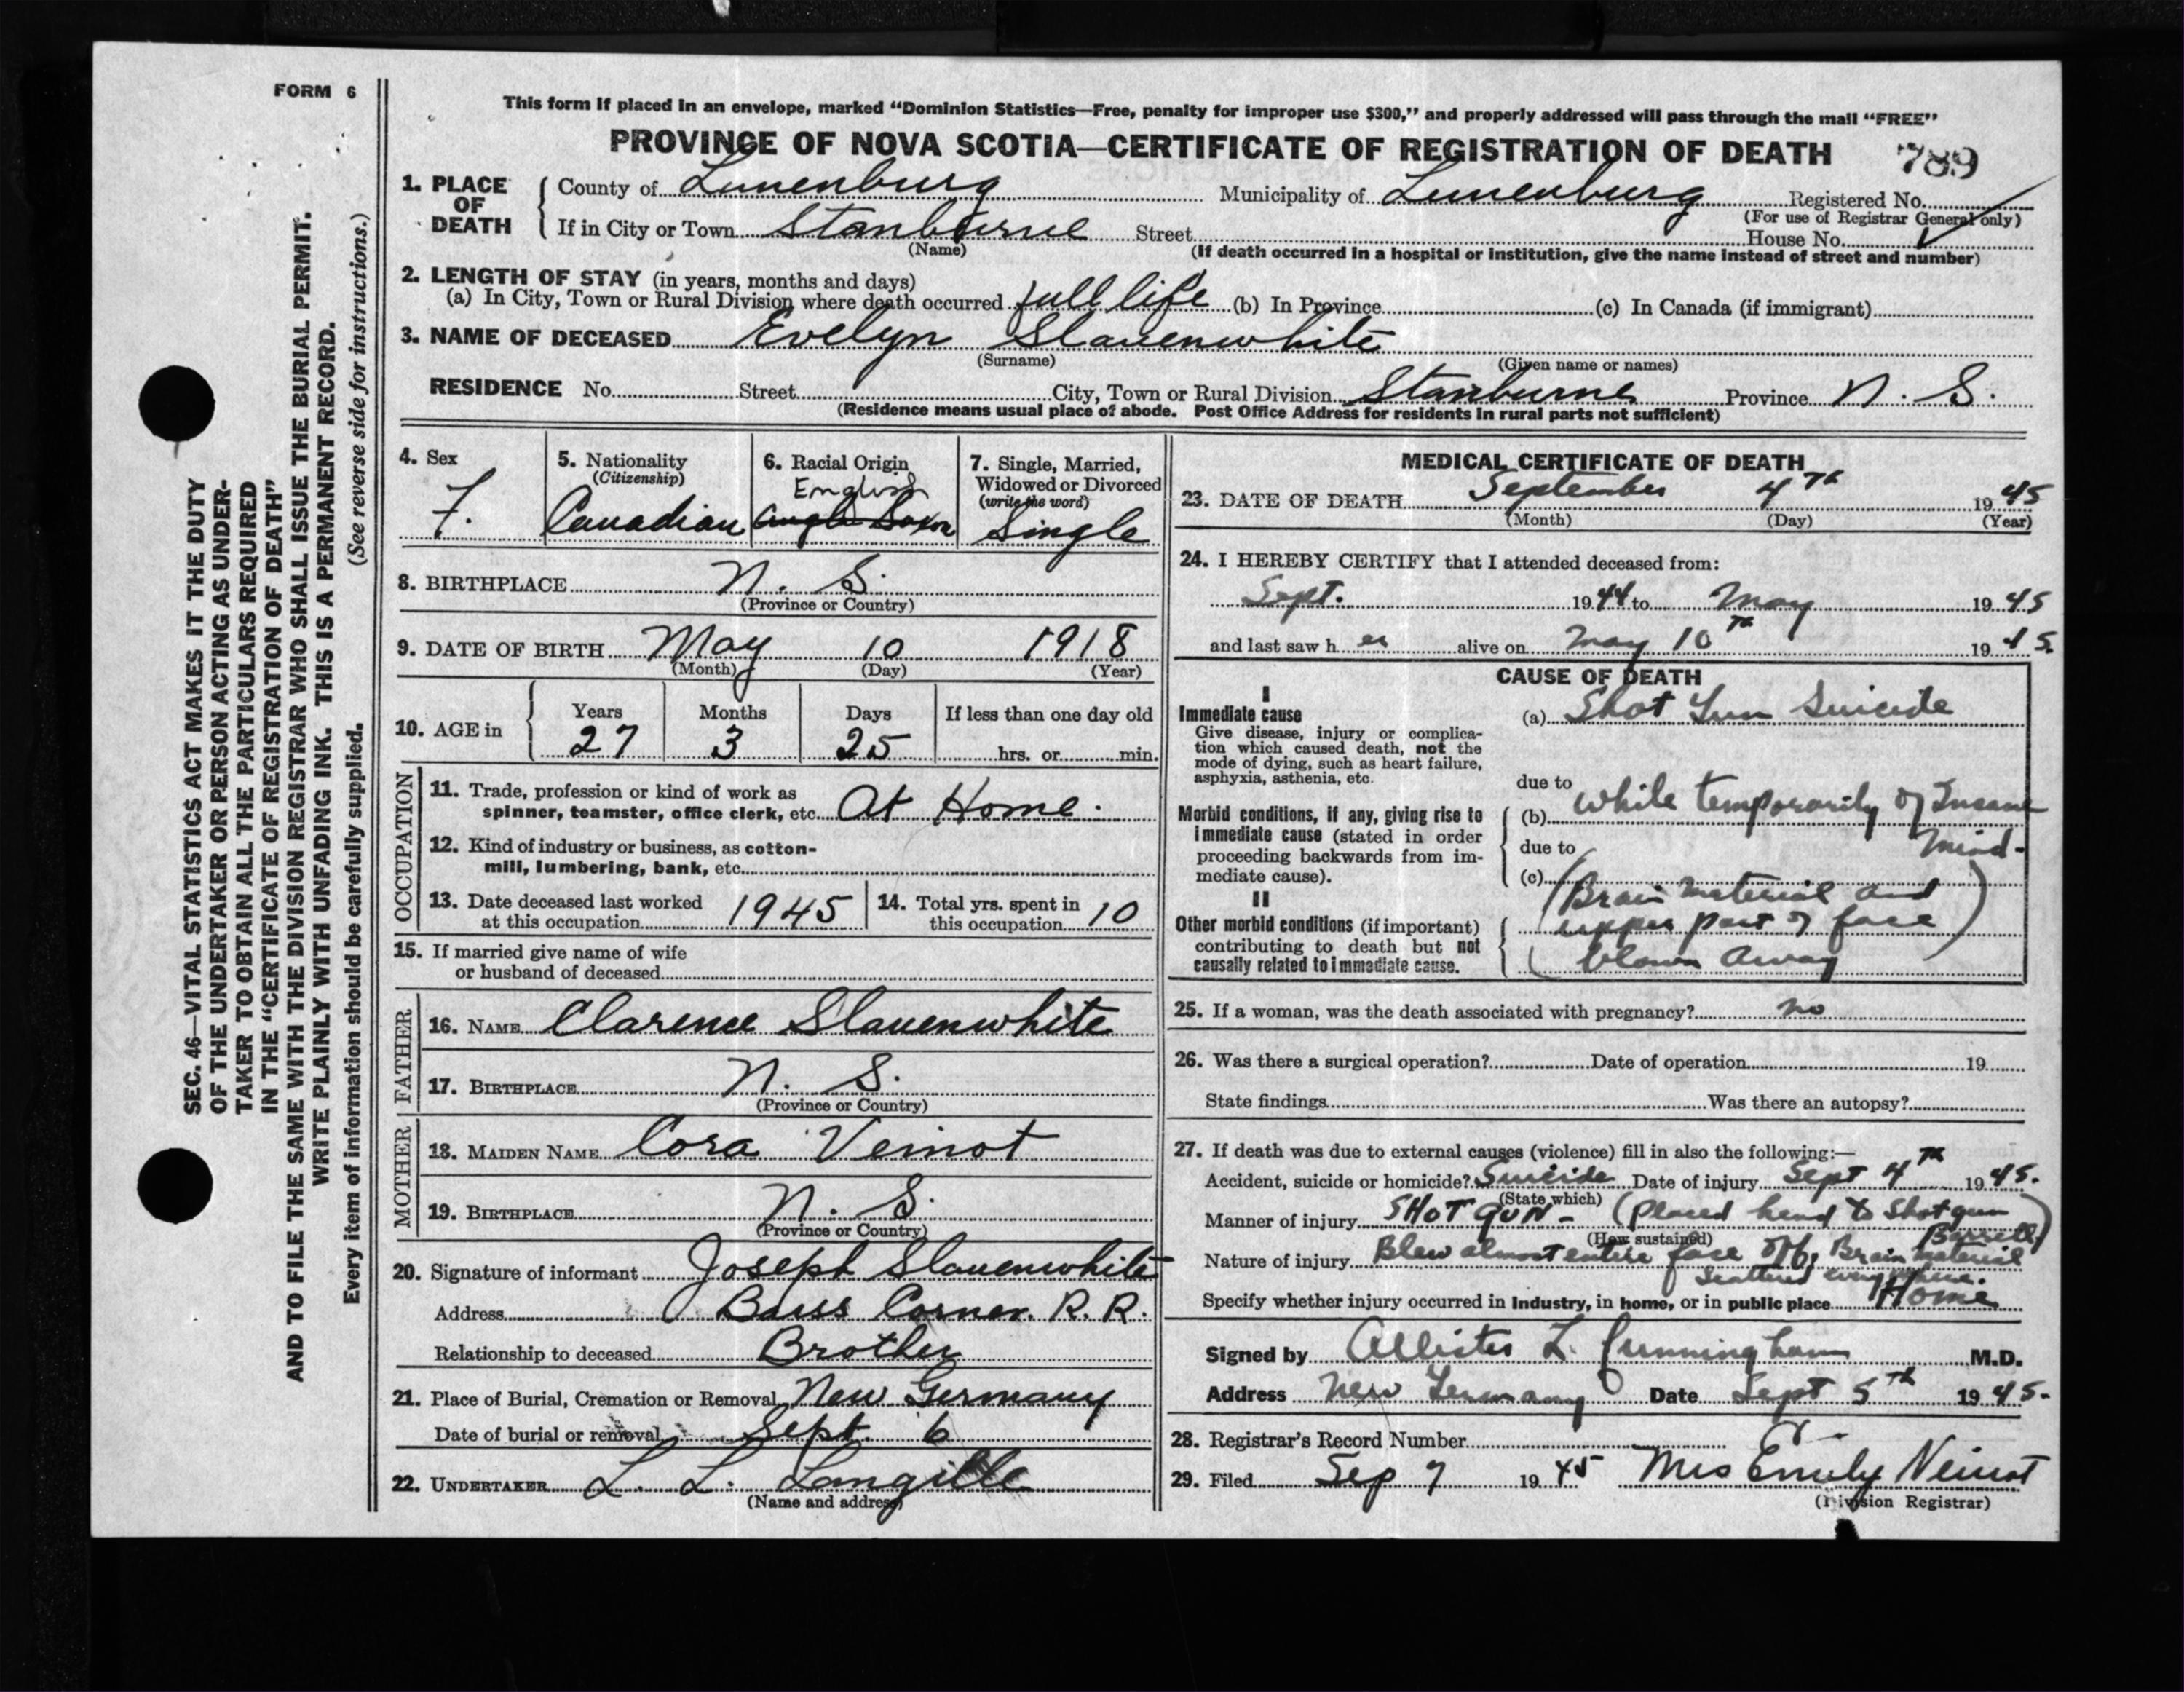 FORM 6
This form if placed in an envelope, marked “Dominion Statistics—Free, penalty for improper use $300,” and properly addressed will pass through the mail “FREE”
PROVINCE OF NOVA SCOTIA—CERTIFICATE OF REGISTRATION OF DEATH 789
1. PLACE OF DEATH
County of Lunenburg Municipality of Lunenburg Registered No.
(For use of Registrar General only)
If in City or Town Stanburne Street House No.
(Name)
(If death occurred in a hospital or institution, give the name instead of street and number)
2. LENGTH OF STAY (in years, months and days)
(a) In City, Town or Rural Division where death occurred full life (b) In Province (c) In Canada (if immigrant)
3. NAME OF DECEASED Evelyn Slauenwhite
(Surname) (Given name or names)
RESIDENCE No. Street City, Town or Rural Division Stanburne Province N. S.
(Residence means usual place of abode. Post Office Address for residents in rural parts not sufficient)
4. Sex
F.
5. Nationality
(Citizenship)
Canadian
6. Racial Origin
English
Anglo Saxon
7. Single, Married,
Widowed or Divorced
(write the word)
Single
8. BIRTHPLACE N. S.
(Province or Country)
9. DATE OF BIRTH May 10 1918
(Month) (Day) (Year)
10. AGE in
Years Months Days If less than one day old
27 3 25 hrs. or min.
OCCUPATION
11. Trade, profession or kind of work as
spinner, teamster, office clerk, etc. At Home.
12. Kind of industry or business, as cotton-
mill, lumbering, bank, etc.
13. Date deceased last worked
at this occupation 1945
14. Total yrs. spent in
this occupation 10
15. If married give name of wife
or husband of deceased
FATHER
16. NAME Clarence Slauenwhite
17. BIRTHPLACE N. S.
(Province or Country)
MOTHER
18. MAIDEN NAME Cora Veinot
19. BIRTHPLACE N. S.
(Province or Country)
20. Signature of informant Joseph Slauenwhite
Address Barss Corner. R. R.
Relationship to deceased Brother
21. Place of Burial, Cremation or Removal New Germany
Date of burial or removal Sept. 6
22. UNDERTAKER L. L. Langille
(Name and address)
MEDICAL CERTIFICATE OF DEATH
23. DATE OF DEATH September 4th 1945
(Month) (Day) (Year)
24. I HEREBY CERTIFY that I attended deceased from:
Sept. 1944 to May 1945
and last saw her alive on May 10th 1945.
CAUSE OF DEATH
I
Immediate cause
Give disease, injury or complica-
tion which caused death, not the
mode of dying, such as heart failure,
asphyxia, asthenia, etc.
(a) Shot Gun Suicide
due to
Morbid conditions, if any, giving rise to
immediate cause (stated in order
proceeding backwards from im-
mediate cause).
(b) while temporarily of Insane
due to Mind-
(c)
II
Other morbid conditions (if important)
contributing to death but not
causally related to immediate cause.
(Brain material and
upper part of face
blown away)
25. If a woman, was the death associated with pregnancy? no
26. Was there a surgical operation? Date of operation 19
State findings Was there an autopsy?
27. If death was due to external causes (violence) fill in also the following:—
Accident, suicide or homicide? Suicide Date of injury Sept 4th 1945.
(State which)
Manner of injury SHOT GUN - (Placed head to Shotgun
(How sustained) Barrell)
Nature of injury Blew almost entire face off, Brain material
scattered everywhere.
Specify whether injury occurred in Industry, in home, or in public place Home
Signed by Allister L. Cunningham M.D.
Address New Germany Date Sept 5th 1945.
28. Registrar's Record Number
29. Filed Sep 7 1945 Mrs Emily Veinot
(Division Registrar)
SEC. 46—VITAL STATISTICS ACT MAKES IT THE DUTY
OF THE UNDERTAKER OR PERSON ACTING AS UNDER-
TAKER TO OBTAIN ALL THE PARTICULARS REQUIRED
IN THE “CERTIFICATE OF REGISTRATION OF DEATH”
AND TO FILE THE SAME WITH THE DIVISION REGISTRAR WHO SHALL ISSUE THE BURIAL PERMIT.
WRITE PLAINLY WITH UNFADING INK. THIS IS A PERMANENT RECORD.
Every item of information should be carefully supplied. (See reverse side for instructions.)